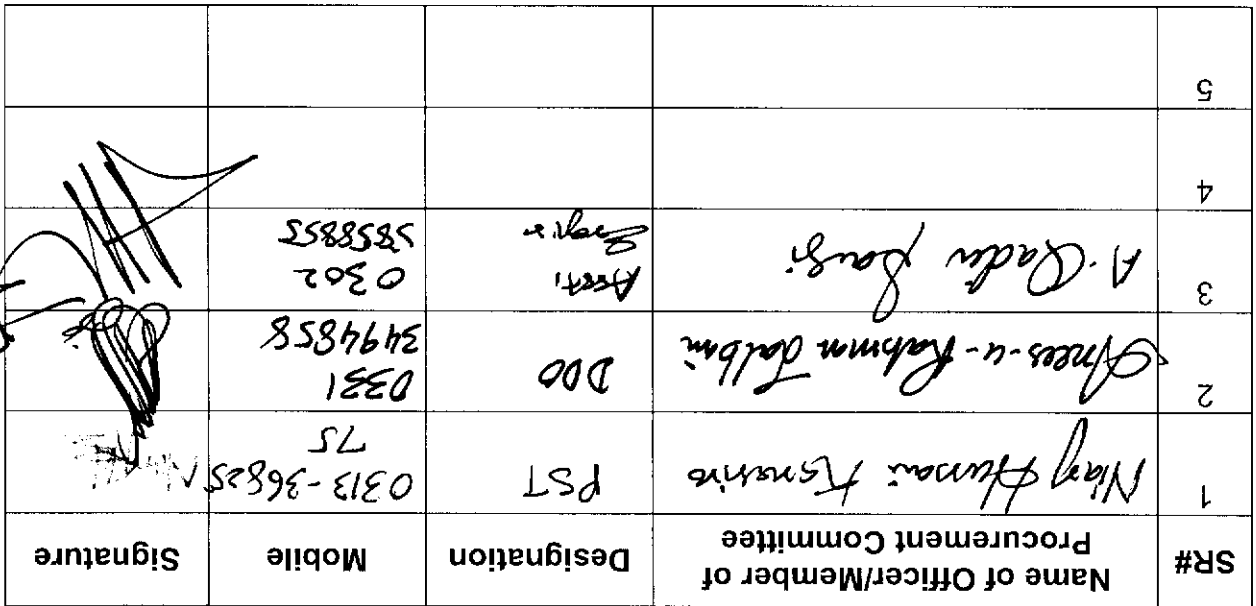 SR# Name of Officer/Member of Procurement Committee Designation Mobile Signature
1 Niaz Hussai PST 0313-36825
75
2 Anees-u-Rahman Jalbani DDO 0331
3494858
3 A. Qadir Sangi Assti 0302
5858855
4
5